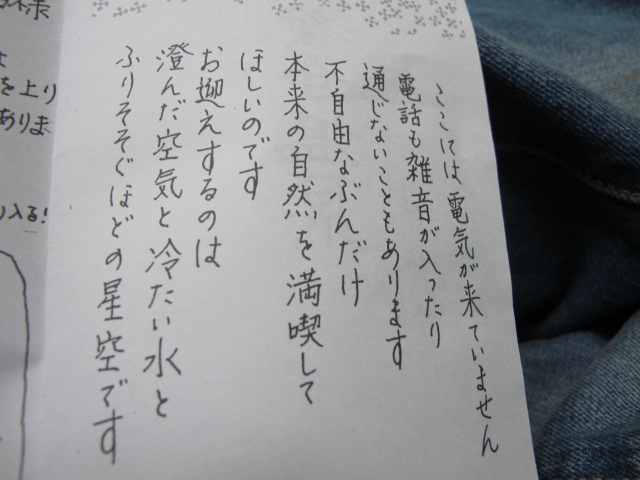 ここには電気が来ていません
電話も雑音が入ったり
通じないこともあります
不自由なぶんだけ
本来の自然を満喫して
ほしいのです
お迎えするのは
澄んだ空気と冷たい水と
ふりそそぐほどの星空です
を上り
ありま
入る!